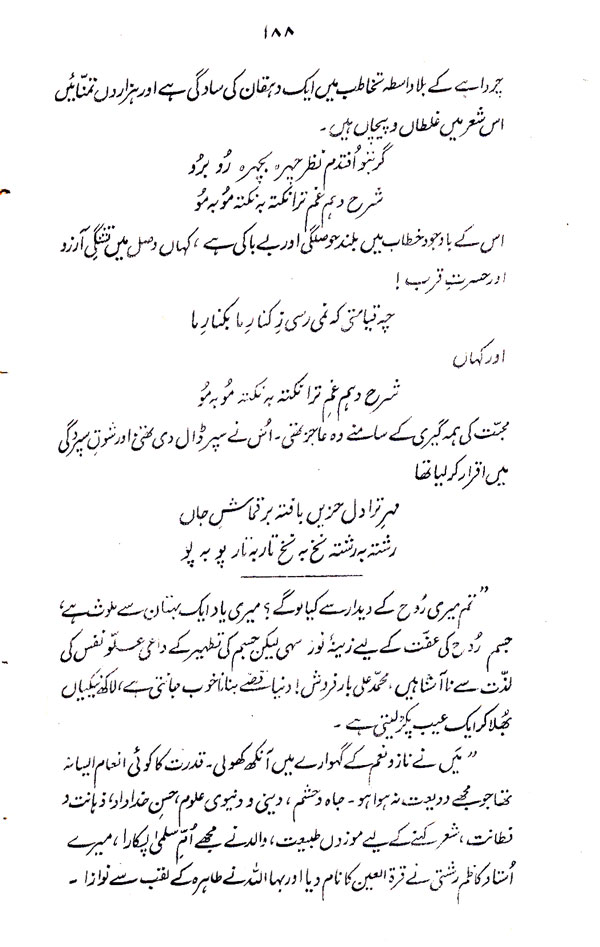 ۱۸۸
چرواہے کے بلاواسطہ تخاطب میں ایک دہقان کی سادگی ہے اور ہزاروں تمنائیں
اس شعر میں غلطاں و پیچاں ہیں۔
گر بتو اُفتدم نظر چہرہ بچہرہ رُو برُو
شرح دہم غم ترا نکتہ بہ نکتہ مُو بہ مُو
اس کے باوجود خطاب میں بلند حوصلگی اور بے باکی ہے، کہاں وصل میں تشنگیِ آرزو
اور حسرتِ قرب!
چہ قیامتی کہ نمی رسی زِ کنارِ ما بکنارِ ما
اور کہاں
شرح دہم غمِ ترا نکتہ بہ نکتہ مُو بہ مُو
محبّت کی ہمہ گیری کے سامنے وہ عاجز تھی۔ اُس نے سپر ڈال دی تھی اور شوقِ سپردگی
میں اقرار کر لیا تھا
مہرِ ترا دلِ حزیں بافتہ بر قماشِ جاں
رشتہ بہ رشتہ نخ بہ نخ تار بہ تار پو بہ پو
”تم میری رُوح کے دیدار سے کیا لو گے؟ میری یاد ایک بہتان سے ملوث ہے،
جسم رُوح کی عفّت کے لیے زینۂ نور سہی لیکن جسم کی تطہیر کے داعی علوِّ نفس کی
لذّت سے ناآشنا ہیں، محمّد علی بار فروش! دنیا قصّے بنانا خوب جانتی ہے، لاکھ نیکیاں
بُھلا کر ایک عیب پکڑ لیتی ہے۔
”میَں نے ناز و نعم کے گہوارے میں آنکھ کھولی۔ قدرت کا کوئی انعام ایسا نہ
تھا جو مجھے ودیعت نہ ہوا ہو۔ جاہ و حشم، دینی و دنیوی علوم، حسنِ خداداد، ذہانت و
فطانت، شعر کہنے کے لیے موزوں طبیعت، والد نے مجھے اُمِّ سلمیٰ پکارا، میرے
اُستاد کاظم رشتی نے قرۃ العین کا نام دیا اور بہا اللہ نے طاہرہ کے لقب سے نوازا۔